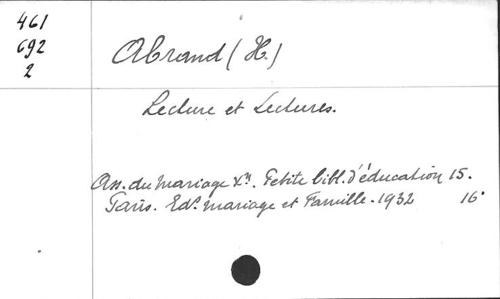 461
692
2
Abrand (H.)
Lecture et Lectures.
Ass. du Mariage Xn. Petite bibl. d'éducation 15.
Paris. Edns mariage et Famille. 1932 16°